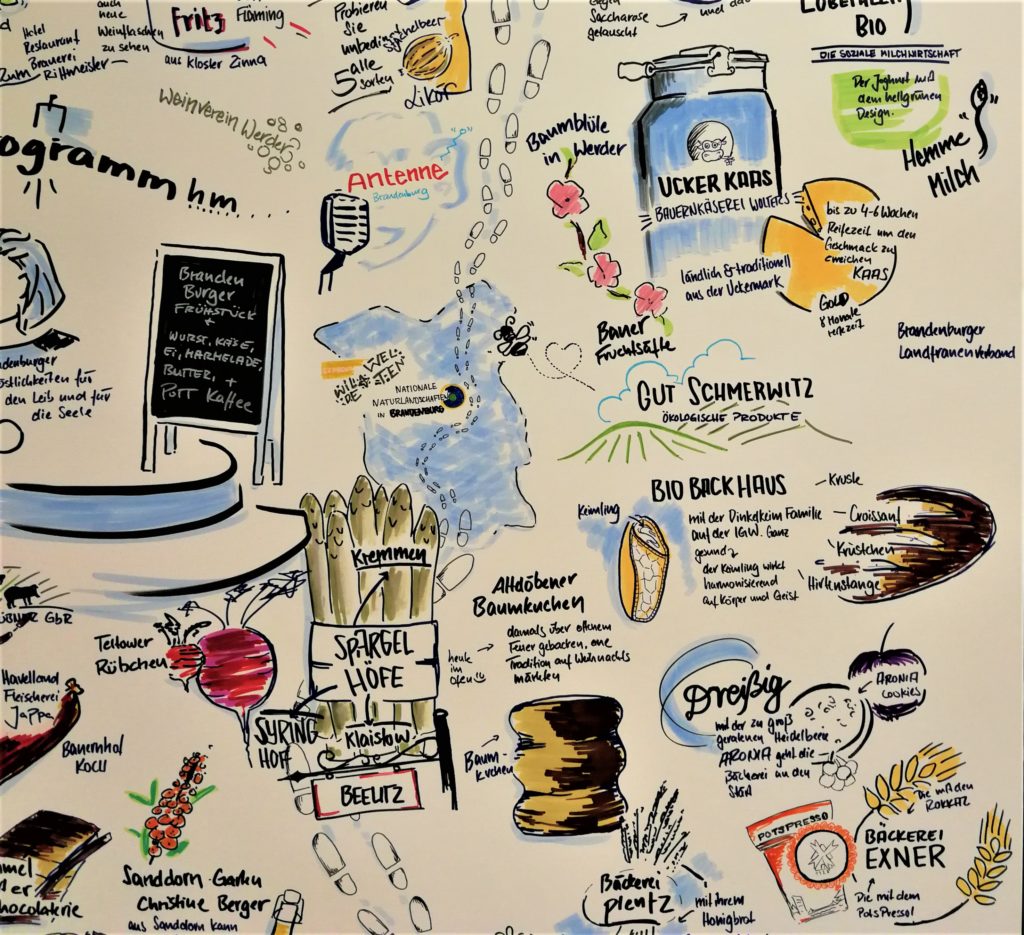 auch
neue
Weinflaschen
zu sehen
Hotel
Restaurant
Brauerei
Zum Rittmeister
Fritz
Fläming
aus Kloster Zinna
Probieren
Sie
unbedingt
alle
5 sorten
Stachelbeer
Likör
gegen
Saccharose
getauscht
und das
LOBETALER
BIO
DIE SOZIALE MILCHWIRTSCHAFT
Der Joghurt mit
dem hellgrünen
Design.
Hemme
Milch
Weinverein Werder
ogramm hm
Antenne
Brandenburg
Baumblüte
in Werder
UCKER KAAS
BAUERNKÄSEREI WOLTERS
ländlich & traditionell
aus der Uckermark
bis zu 4-6 Wochen
Reifezeit um den
Geschmack zu
erreichen
KAAS
GOLD
8 Monate
reifezeit
Bauer
Fruchtsäfte
Brandenburger
Landfrauenverband
Branden
Burger
FRÜHSTÜCK
+
WURST, KÄSE,
EI, MARMELADE,
BUTTER, +
POTT KAFFEE
ndenburger
östlichkeiten für
den Leib und für
die Seele
WIL DE
WEL TEN
NATIONALE
NATURLANDSCHAFTEN
IN BRANDENBURG
GUT SCHMERWITZ
ÖKOLOGISCHE PRODUKTE
BIO BACKHAUS
Keimling
mit der Dinkelkeim Familie
auf der IGW. Ganz
gesund
der Keimling wirkt
harmonisierend
auf Körper und Geist
Kruste
Croissant
Krüstchen
Hirtenstange
Kremmen
SPARGEL
HÖFE
SYRING
HOF
Klaistow
BEELITZ
Altdöbener
Baumkuchen
damals über offenem
Feuer gebacken, eine
Tradition auf Weihnachts
märkten
heute
im
Ofen
Baum-
kuchen
ÜBNER GbR
Teltower
Rübchen
Havelland
Fleischerei
Jappa
Bauernhof
KOCH
Dreißig
mit der zu groß
geratenen Heidelbeere
ARONIA geht die
Bäckerei an den
Start
ARONIA
COOKIES
Die mit den
POTSPRESSO
BÄCKEREI
EXNER
Die mit dem
PotsPresso!
Sanddorn-Garten
Christine Berger
aus Sanddorn kann
Bäckerei
plentz
mit ihrem
Honigbrot